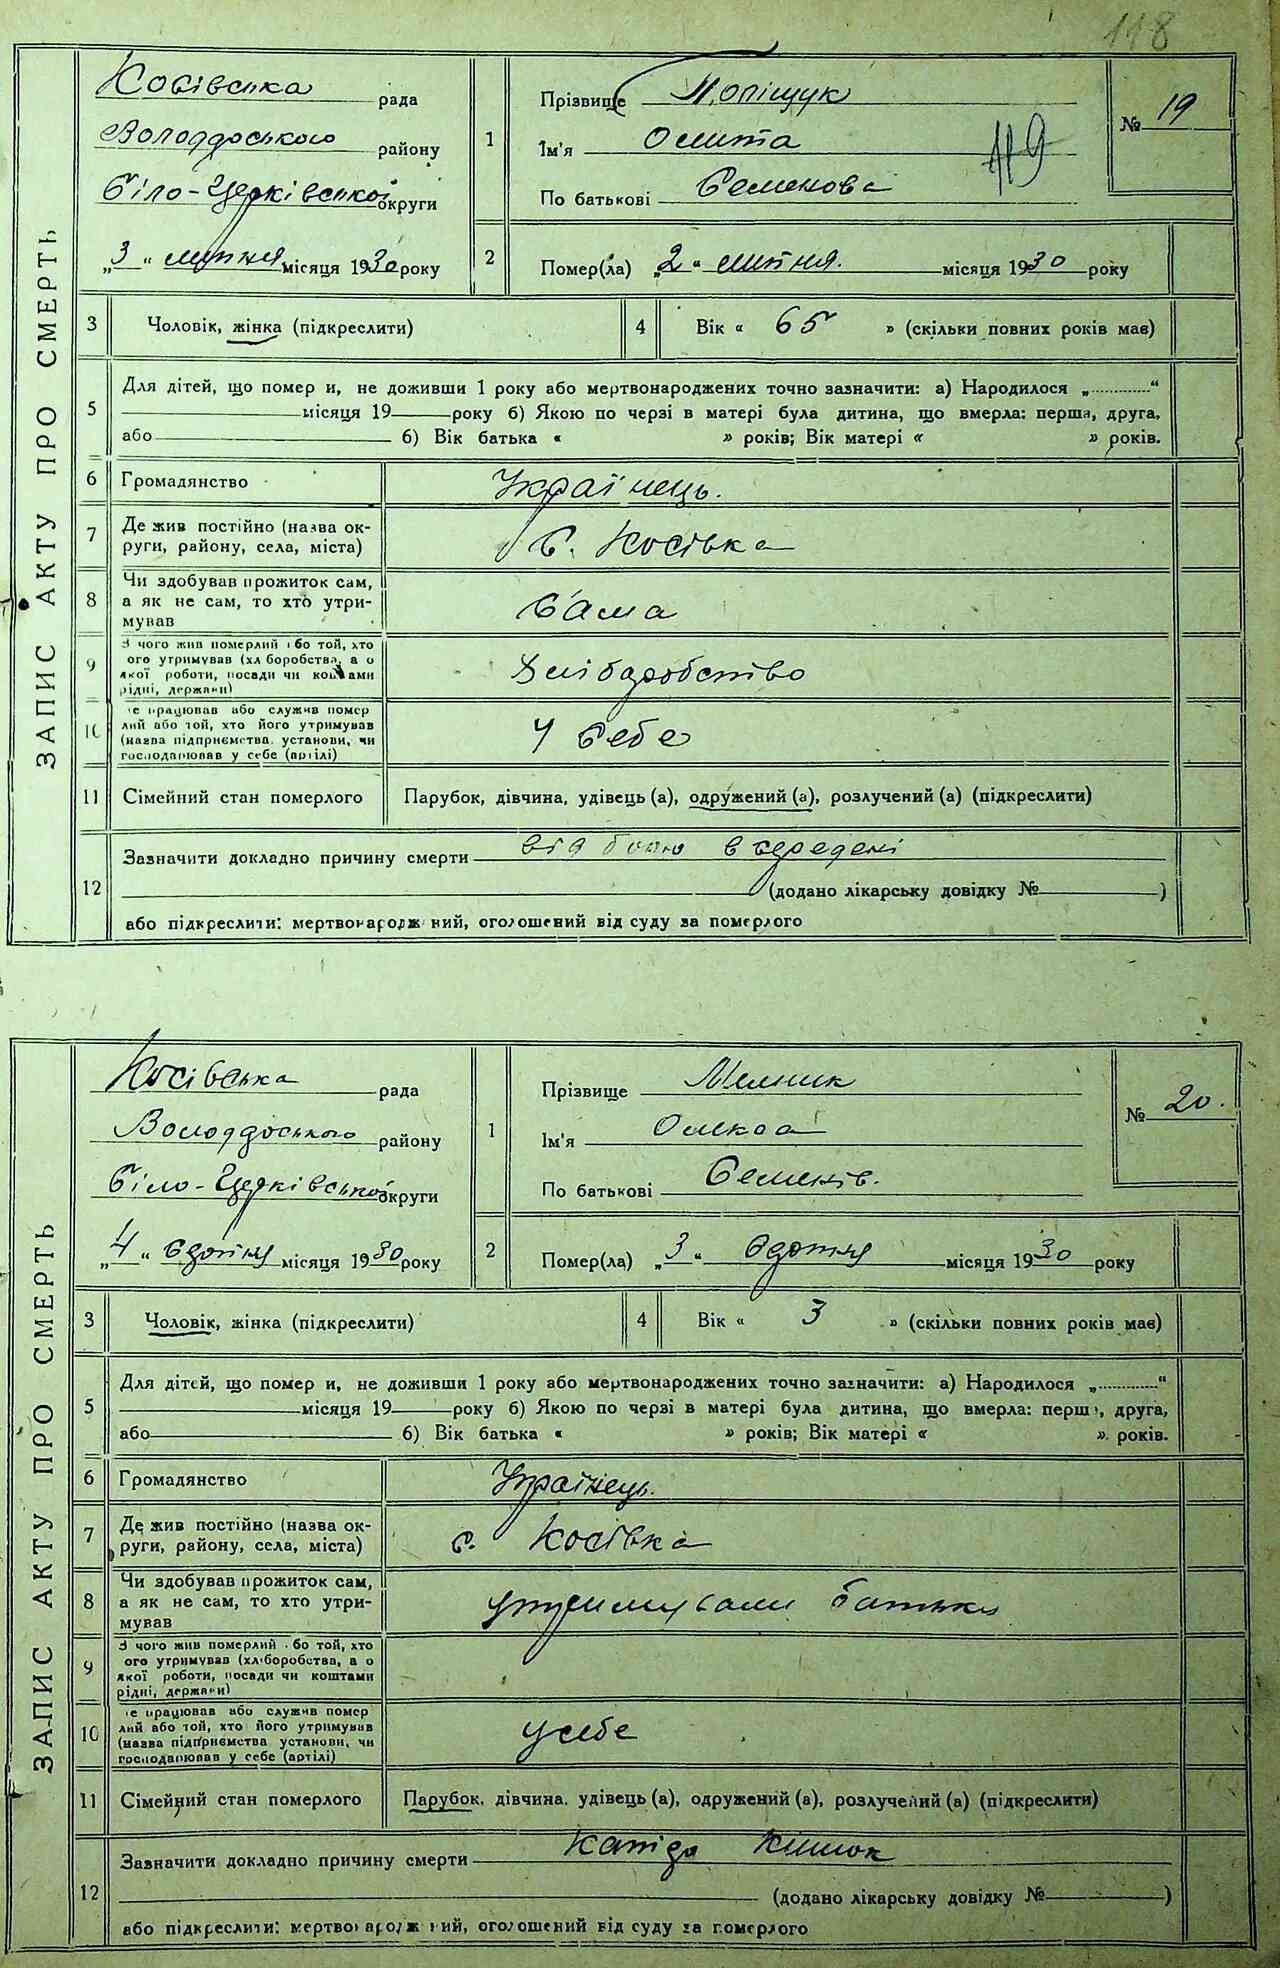 118
ЗАПИС АКТУ ПРО СМЕРТЬ
Косівська рада
Володарського району
Біло-Церківської округи
„3" липня місяця 1930 року
1
Прізвище Поліщук
Ім'я
По батькові Семенова
119
№ 19
2
Помер(ла) „2" липня. місяця 1930 року
3
Чоловік, жінка (підкреслити)
4
Вік « 65 » (скільки повних років має)
5
Для дітей, що помер и, не доживши 1 року або мертвонароджених точно зазначити: а) Народилося „............"
місяця 19 року б) Якою по черзі в матері була дитина, що вмерла: перша, друга,
або б) Вік батька « » років; Вік матері « » років.
6
Громадянство Українець.
7
Де жив постійно (назва ок-
руги, району, села, міста)
С. Косівка
8
Чи здобував прожиток сам,
а як не сам, то хто утри-
мував
Сама
9
З чого жив померлий або той, хто
ого утримував (хл боробства, а о
якої роботи, посади чи коштами
рідні, держави)
Хліборобство
10
е працював або служив помер
лий або той, хто його утримував
(назва підприємства, установи, чи
господарював у себе (артілі)
У Себе
11
Сімейний стан померлого
Парубок, дівчина, удівець (а), одружений (а), розлучений (а) (підкреслити)
12
Зазначити докладно причину смерти від болю в середені
(додано лікарську довідку № )
або підкреслити: мертвонародж ний, оголошений від суду за померлого
ЗАПИС АКТУ ПРО СМЕРТЬ
Косівська рада
Володарського району
Біло-Церківської округи
„4" місяця 1930 року
1
Прізвище Мельник
Ім'я
По батькові Семенів.
№ 20.
2
Помер(ла) „3" місяця 1930 року
3
Чоловік, жінка (підкреслити)
4
Вік « 3 » (скільки повних років має)
5
Для дітей, що помер и, не доживши 1 року або мертвонароджених точно зазначити: а) Народилося „............"
місяця 19 року б) Якою по черзі в матері була дитина, що вмерла: перш , друга,
або б) Вік батька « » років; Вік матері « » років.
6
Громадянство Українець.
7
Де жив постійно (назва ок-
руги, району, села, міста)
с. Косівка
8
Чи здобував прожиток сам,
а як не сам, то хто утри-
мував
утримували батьки
9
З чого жив померлий або той, хто
ого утримував (хліборобства, а о
якої роботи, посади чи коштами
рідні, держави)
10
е працював або служив помер
лий або той, хто його утримував
(назва підприємства установи, чи
господарював у себе (артілі)
у себе
11
Сімейний стан померлого
Парубок, дівчина, удівець (а), одружений (а), розлучений (а) (підкреслити)
12
Зазначити докладно причину смерти кишок
(додано лікарську довідку № )
або підкреслити: мертвонародж ний, оголошений від суду за померлого